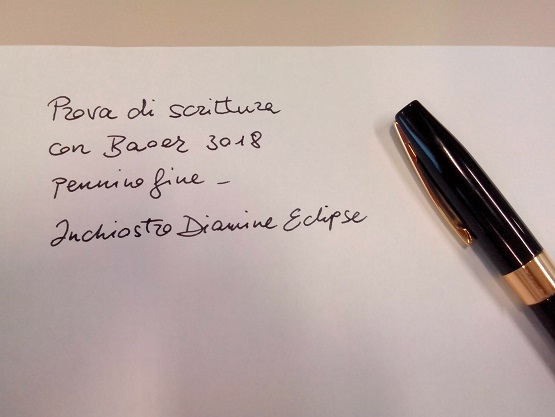 Prova di scrittura
con Baoer 3018
pennino fine -
Inchiostro Diamine Eclipse